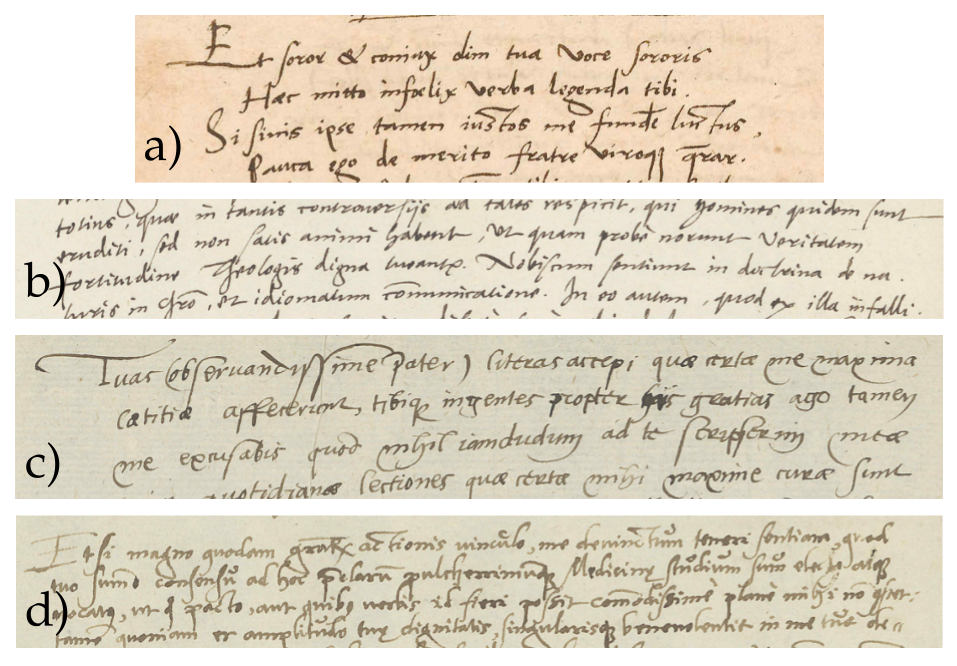 a)
Et soror & coniux dim tua voce sororis
Hæc mitto infœlix verba legenda tibi.
Si sinis ipse tamen iustos me fundẽ luctus,
Pauca ego de merito fratre viroqꝫ q̃rar.
b)
totius, quæ in tantis controversijs ad tales respicit, qui homines quidem sunt
eruditi, sed non satis animi habent, ut quam probe norunt veritatem
fortitudine Theologis digna tueantr. Nobiscum sentiunt in doctrina de na.
turis in Chrō, et idiomatum com̃unicatione. In eo autem, quod ex illa infalli.
c)
Tuas (observandissime pater) literas accepi quæ certæ me maxima
lætitiæ affecerunt, tibiqꝫ ingentes propter his gratias ago tamen
me excusabis quod nihil iamdudum ad te scripserim meæ
quotidianæ lectiones quæ certæ mihi maxime curæ sunt
d)
Etsi magno quodam actionis vinculo, me devinctum teneri sentiam, quod
tuo sum̃o consensu ad hoc pulcherrimumqꝫ Medicinę studium sum electo atqꝫ
vocatꝫ, ut q̃ pacto, aut quibꝫ verbis id fieri possit com̃odissime plane mihi nō
tamē quoniam et amplitudo tuę dignitatis, singularisqꝫ benevolentię in me tuę de=